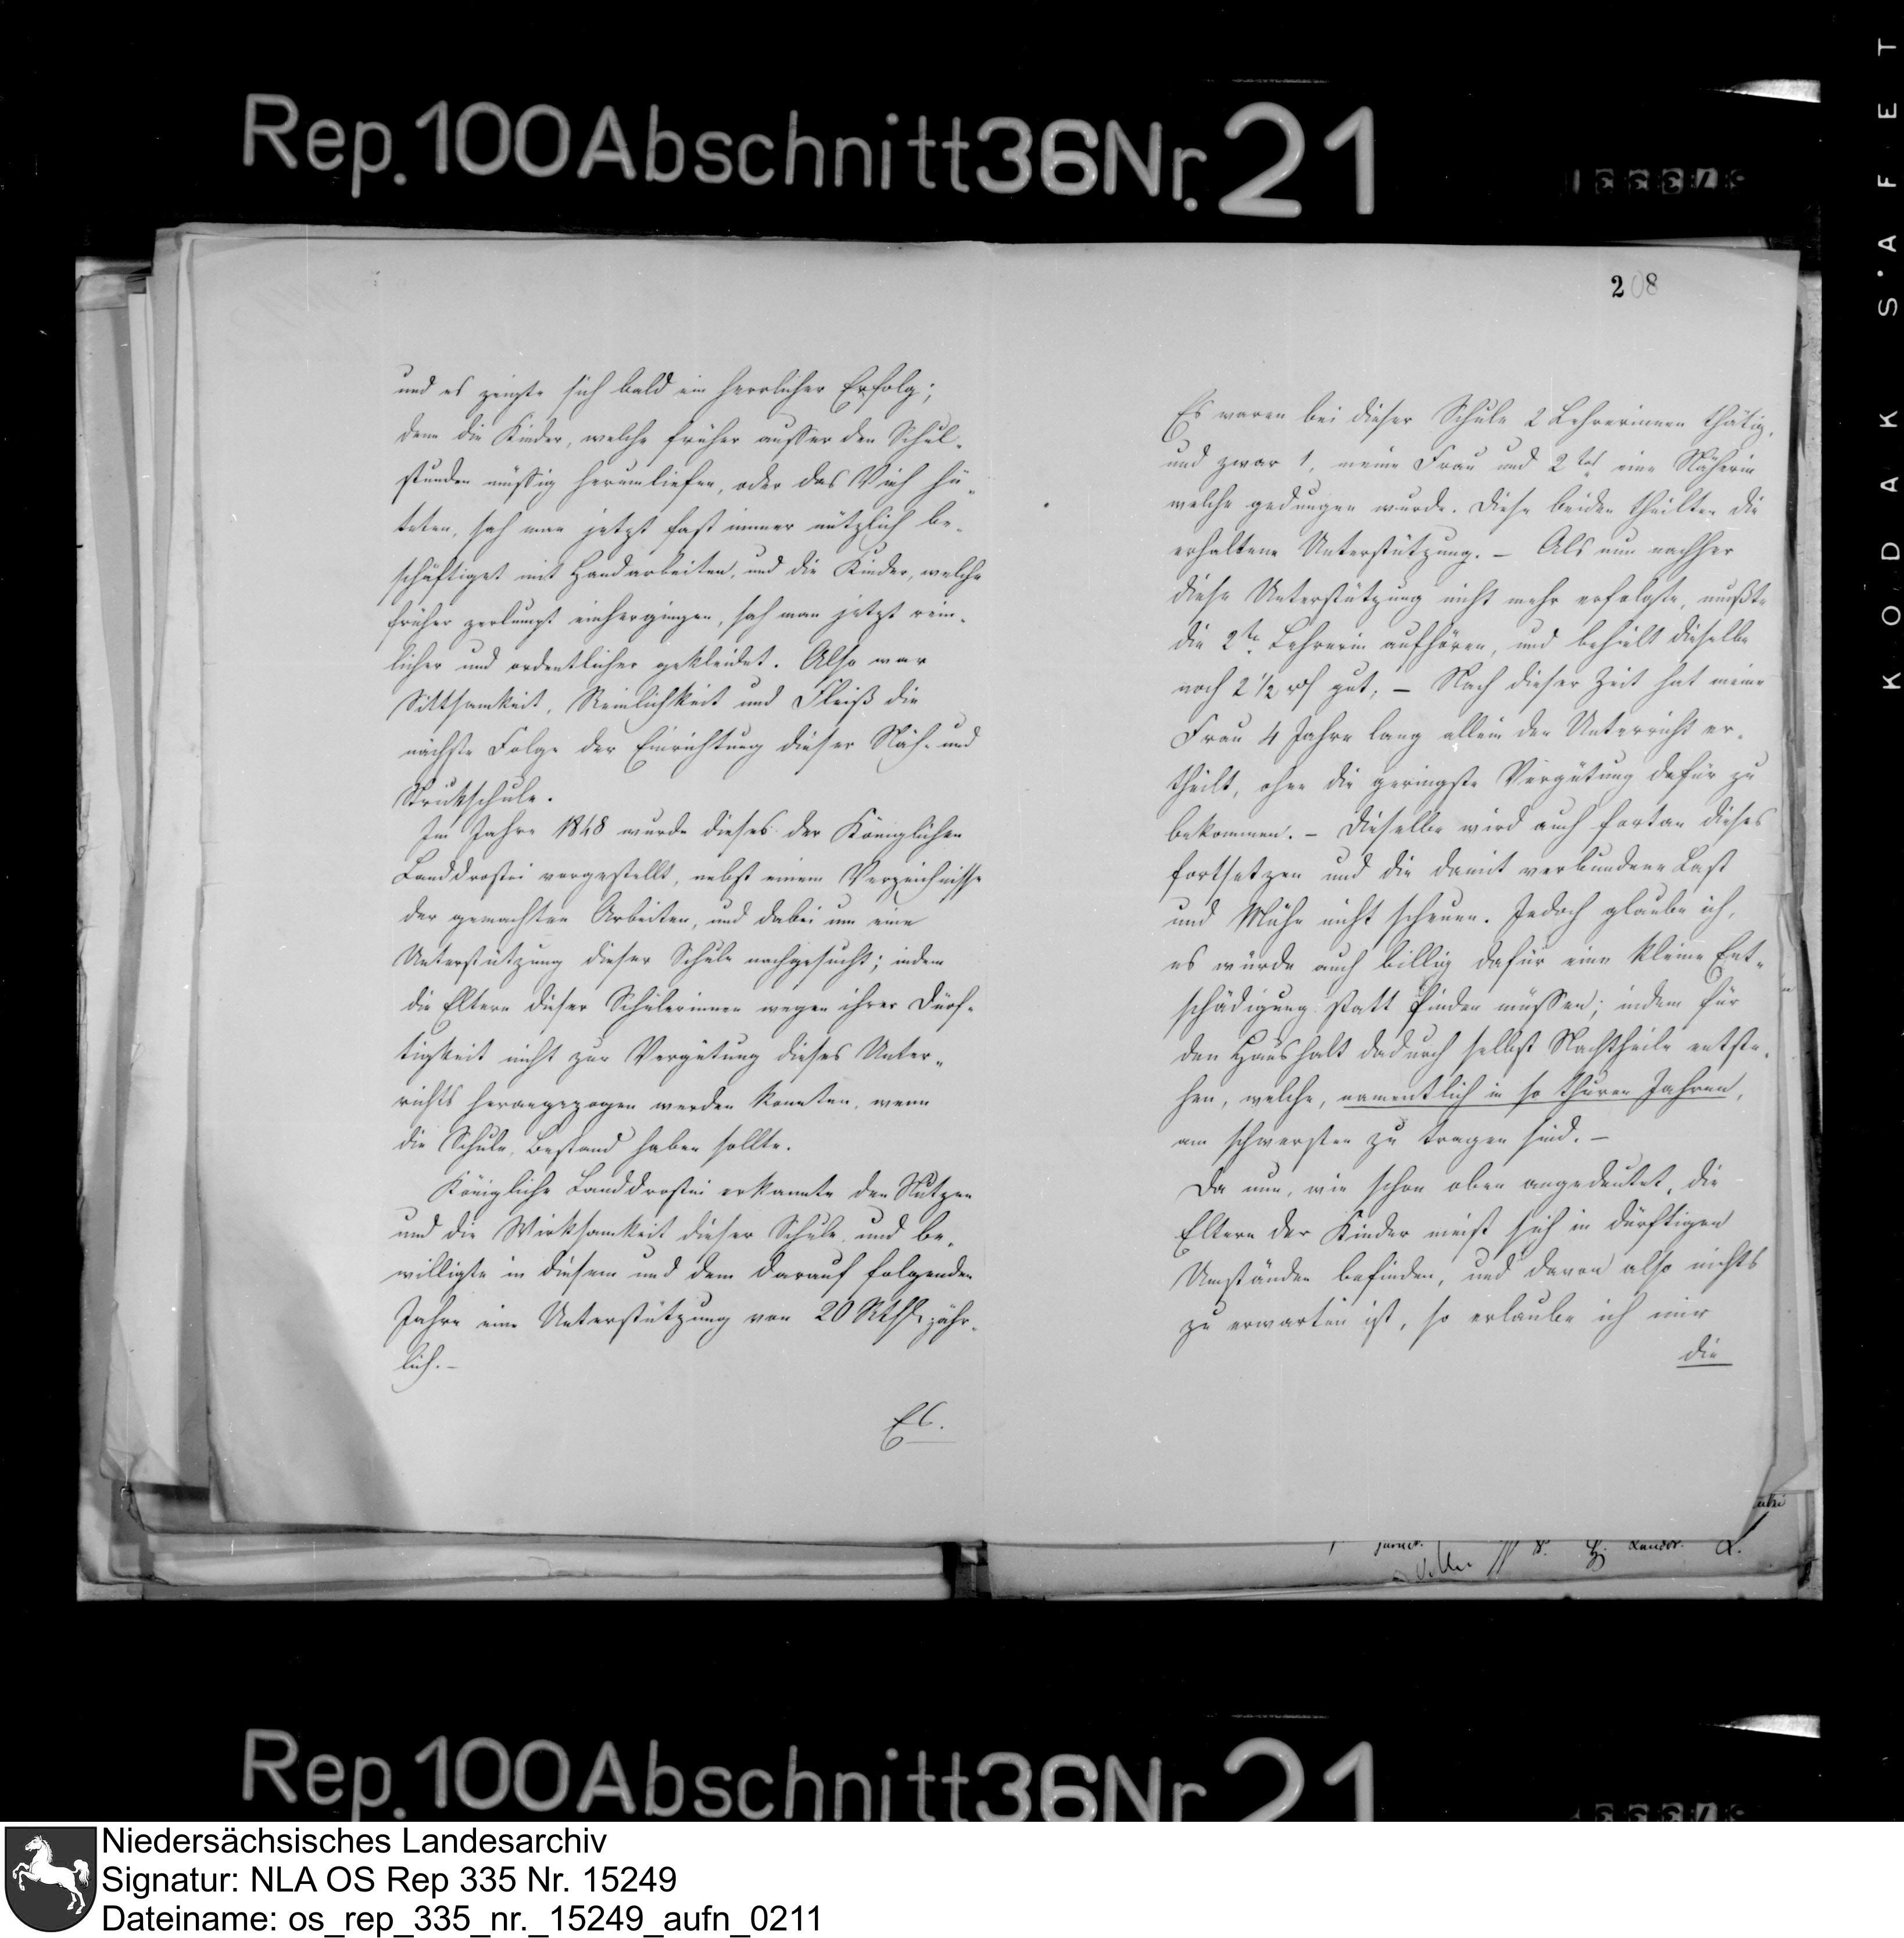 Rep. 100 Abschnitt 36 Nr. 21
KODAK S'AFET
208
und es zeigte sich bald ein herrlicher Erfolg;
denn die Kinder, welche früher ausser den Schul-
stunden müssig herumliefen, oder das Vieh hü-
teten, sah man jetzt fast immer nützlich be-
schäftiget mit Handarbeiten, und die Kinder, welche
früher zerlumpt einhergingen, sah man jetzt rein-
licher und ordentlicher gekleidet. Also war
Sittsamkeit, Reinlichkeit und Fleiß die
nächste Folge der Einrichtung dieser Näh- und
Strickschule.
Im Jahre 1848 wurde dieses der Königlichen
Landdrostei vorgestellt, nebst einem Verzeichnisse
der gemachten Arbeiten, und dabei um eine
Unterstützung dieser Schule nachgesucht; indem
die Eltern dieser Schülerinnen wegen ihrer Dürf-
tigkeit nicht zur Vergütung dieses Unter-
richts herangezogen werden konnten, wenn
die Schule, Bestand haben sollte.
Königliche Landdrostei erkannte den Nutzen
und die Wirksamkeit dieser Schule, und be-
willigte in diesem und dem darauf folgenden
Jahre eine Unterstützung von 20 Rthlr jähr-
lich. –
Es
Es waren bei dieser Schule 2 Lehrerinnen thätig,
und zwar 1, meine Frau und 2tens eine Näherin
welche gedungen wurde. Diese beiden theilten die
erhaltene Unterstützung. – Als nun nachher
diese Unterstützung nicht mehr erfolgte, mußte
die 2te Lehrerin aufhören, und behielt dieselbe
noch 2 1/2 rß gut. – Nach dieser Zeit hat meine
Frau 4 Jahre lang allein den Unterricht er-
theilt, ohne die geringste Vergütung dafür zu
bekommen. – Dieselbe wird auch fortan dieses
fortsetzen und die damit verbundene Last
und Mühe nicht scheuen. Jedoch glaube ich,
es würde auch billig dafür eine kleine Ent-
schädigung statt finden müssen; indem für
den Haushalt dadurch selbst Nachtheile entste-
hen, welche, namentlich in so thuren Jahren,
am schwersten zu tragen sind. –
Da nun, wie schon oben angedeutet, die
Eltern der Kinder meist sich in dürftigen
Umständen befinden, und davon also nichts
zu erwarten ist, so erlaube ich mir
die
Rep. 100 Abschnitt 36 Nr. 21
Niedersächsisches Landesarchiv
Signatur: NLA OS Rep 335 Nr. 15249
Dateiname: os_rep_335_nr._15249_aufn_0211